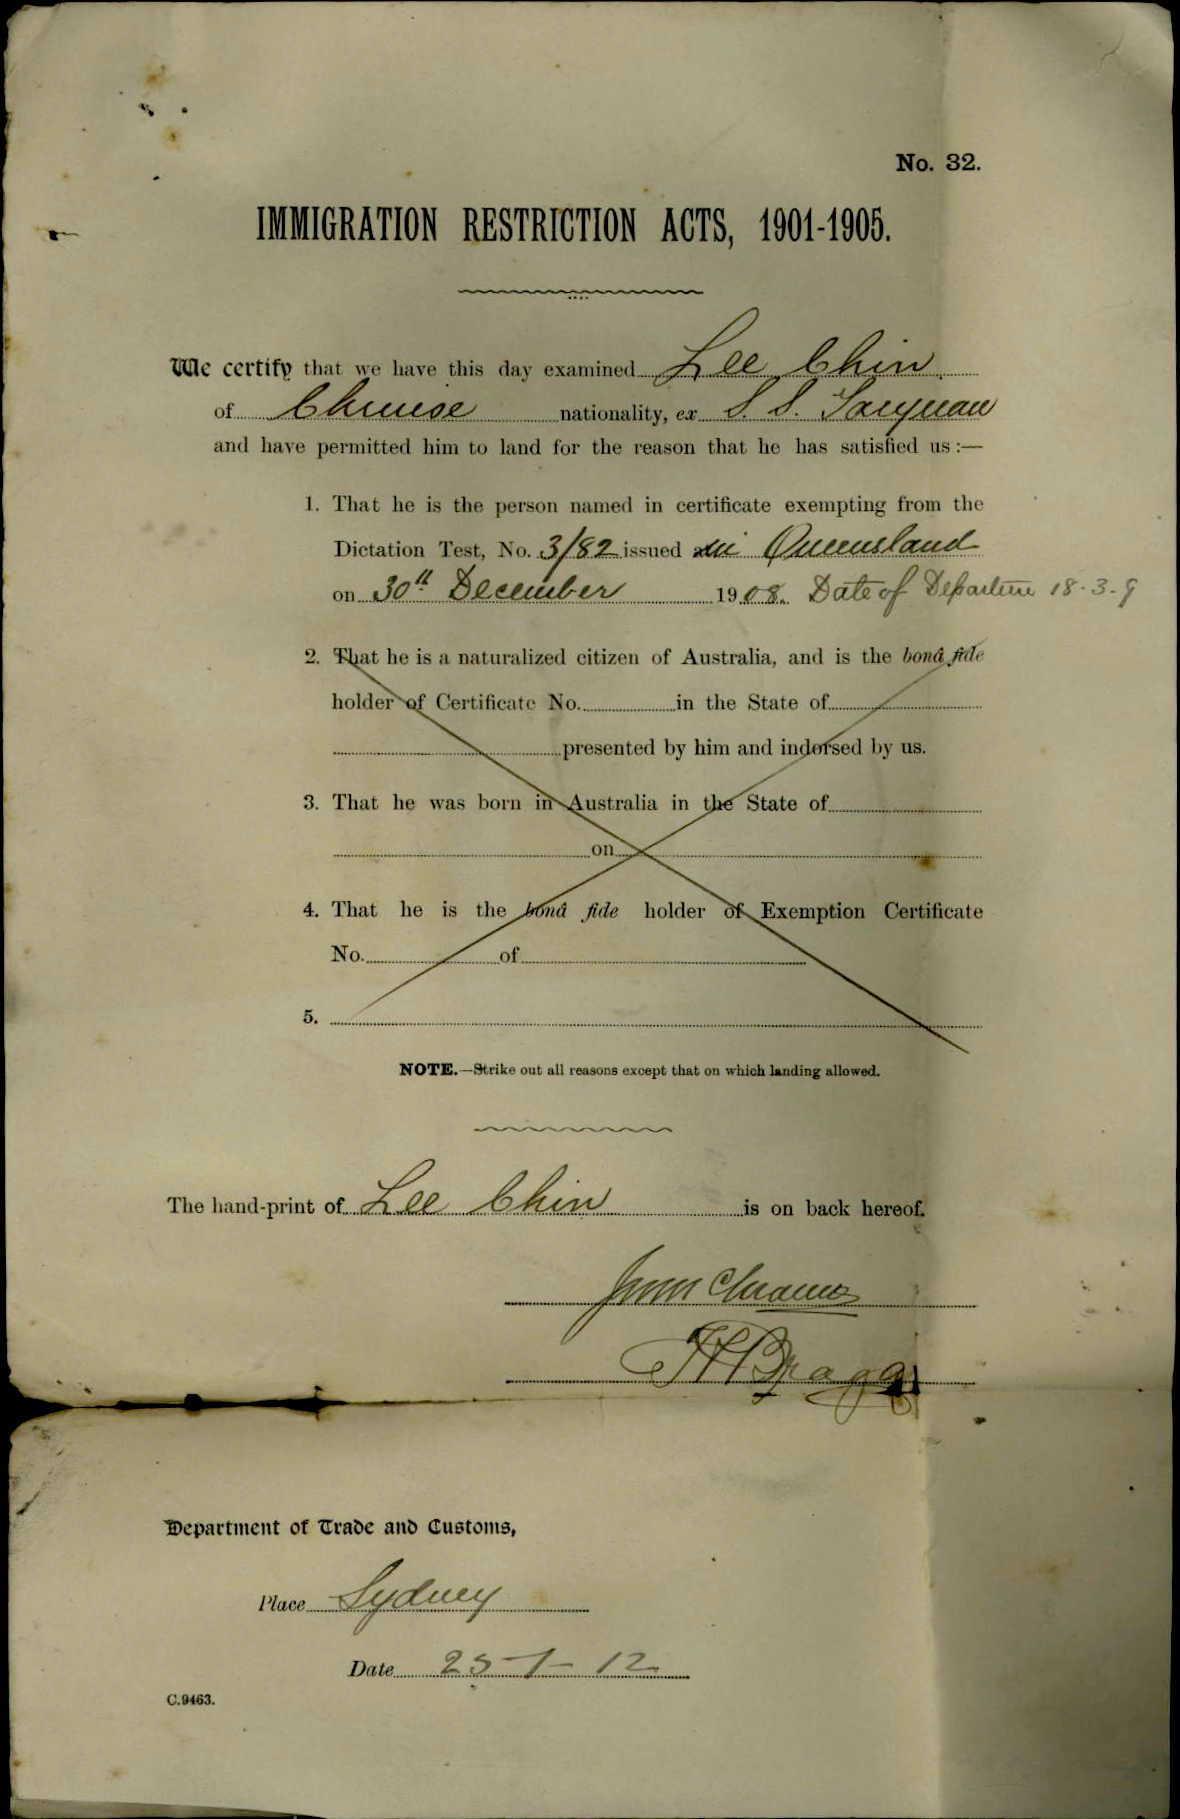 No. 32.
IMMIGRATION RESTRICTION ACTS, 1901-1905.
We certify that we have this day examined Lee Chin.
of Chinese nationality, ex S. S. Taiyuan
and have permitted him to land for the reason that he has satisfied us :—
1. That he is the person named in certificate exempting from the
Dictation Test, No. 3/82 issued in Queensland
on 30th December 1908. Date of Departure 18-3-9
2. That he is a naturalized citizen of Australia, and is the bonâ fide
holder of Certificate No. in the State of
presented by him and indorsed by us.
3. That he was born in Australia in the State of
on
4. That he is the bonâ fide holder of Exemption Certificate
No. of
5.
NOTE.—Strike out all reasons except that on which landing allowed.
The hand-print of Lee Chin is on back hereof.
Bragg
Department of Trade and Customs,
Place Sydney
Date 25-1-12
C.9463.